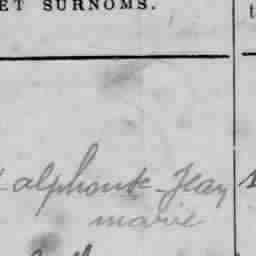 ET SURNOMS.
alphonse Jean
marie